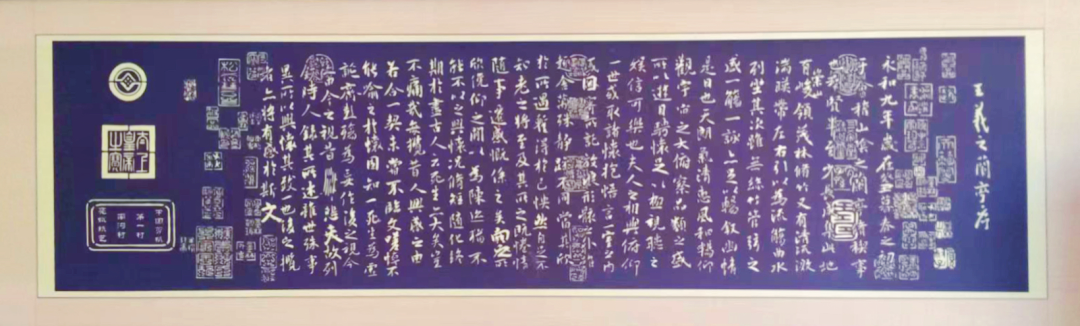 王羲之蘭亭序
永和九年歲在癸丑暮春之初會
于會稽山陰之蘭亭脩稧事
也群賢畢至少長咸集此地
有崇山峻領茂林脩竹又有清流激
湍暎帶左右引以為流觴曲水
列坐其次雖無絲竹管弦之
盛一觴一詠亦足以暢敘幽情
是日也天朗氣清惠風和暢仰
觀宇宙之大俯察品類之盛
所以遊目騁懷足以極視聽之
娛信可樂也夫人之相與俯仰
一世或取諸懷抱悟言一室之內
或因寄所託放浪形骸之外雖
趣舍萬殊靜躁不同當其欣
於所遇蹔得於己怏然自足不
知老之將至及其所之既惓情
隨事遷感慨係之矣向之所
欣俛仰之閒以為陳迹猶不
能不以之興懷況脩短隨化終
期於盡古人云死生亦大矣豈
不痛哉每攬昔人興感之由
若合一契未嘗不臨文嗟悼不
能喻之於懷固知一死生為虛
誕齊彭殤為妄作後之視今
亦由今之視昔悲夫故列
敘時人錄其所述雖世殊事
異所以興懷其致一也後之攬
者亦將有感於斯文
第一村